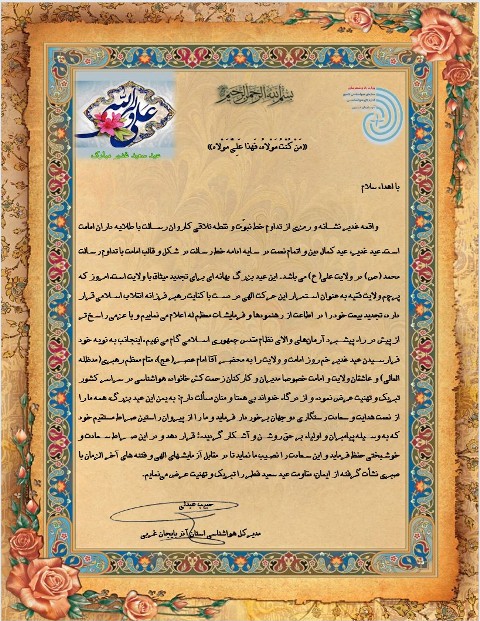 بسم الله الرحمن الرحیم
علی ولی الله
عید سعید غدیر مبارک
«مَنْ کُنْتُ مَوْلاهُ، فَهذا عَلِیٌّ مَوْلاهُ»
با اهداء سلام
واقعه غدیر، نشانه و رمزی از تداوم خط نبوّت و نقطه تلاقی کاروان رسالت با طلایه داران امامت
است. عید غدیر، عید کمال دین و اتمام نعمت در سایه ادامه خط رسالت در شکل و قالب امامت با تداوم رسالت
محمد (ص) در ولایت علی (ع) می باشد. این عید بزرگ بهانه ای برای تجدید میثاق با ولایت است، امروز که
پرچم ولایت فقیه به عنوان استمرار این حرکت الهی در دست با کفایت رهبر فرزانه انقلاب اسلامی قرار
دارد، تجدید بیعت خود را در اطاعت از رهنمودها و فرمایشات معظم له اعلام می نماییم و با عزمی راسخ تر
از پیش در راه پیشبرد آرمان‌های والای نظام مقدس جمهوری اسلامی گام می نهیم. اینجانب به نوبه خود
فرا رسیدن عید غدیر خم روز امامت و ولایت را به محضر آقا امام عصر (عج)، مقام معظم رهبری (مدظله
العالی) و عاشقان ولایت و امامت خصوصا مدیران و کارکنان زحمت کش خانواده هواشناسی در سراسر کشور
تبریک و تهنیت عرض نموده و از درگاه خداوند بی همتا و منان مسألت دارم: به یمن این عید بزرگ، همه ما را
از نعمت هدایت و سعادت رستگاری دو جهان برخوردار فرماید و ما را از پیروان راستین صراط مستقیم خود
که به وسیله پیامبران و اولیاء بر حق روشن و آشکار گردیده؛ قرار دهد و در این صراط سعادت و
خوشبختی حفظ فرماید و این سعادت را نصیب ما نماید تا در مقابل آزمایشهای الهی و فتنه های آخر الزمان با
صبری نشأت گرفته از ایمان، مقاومت عید سعید فطر را تبریک و تهنیت عرض می‌نمایم.
حبیب عبدلی
مدیر کل هواشناسی استان آذربایجان غربی